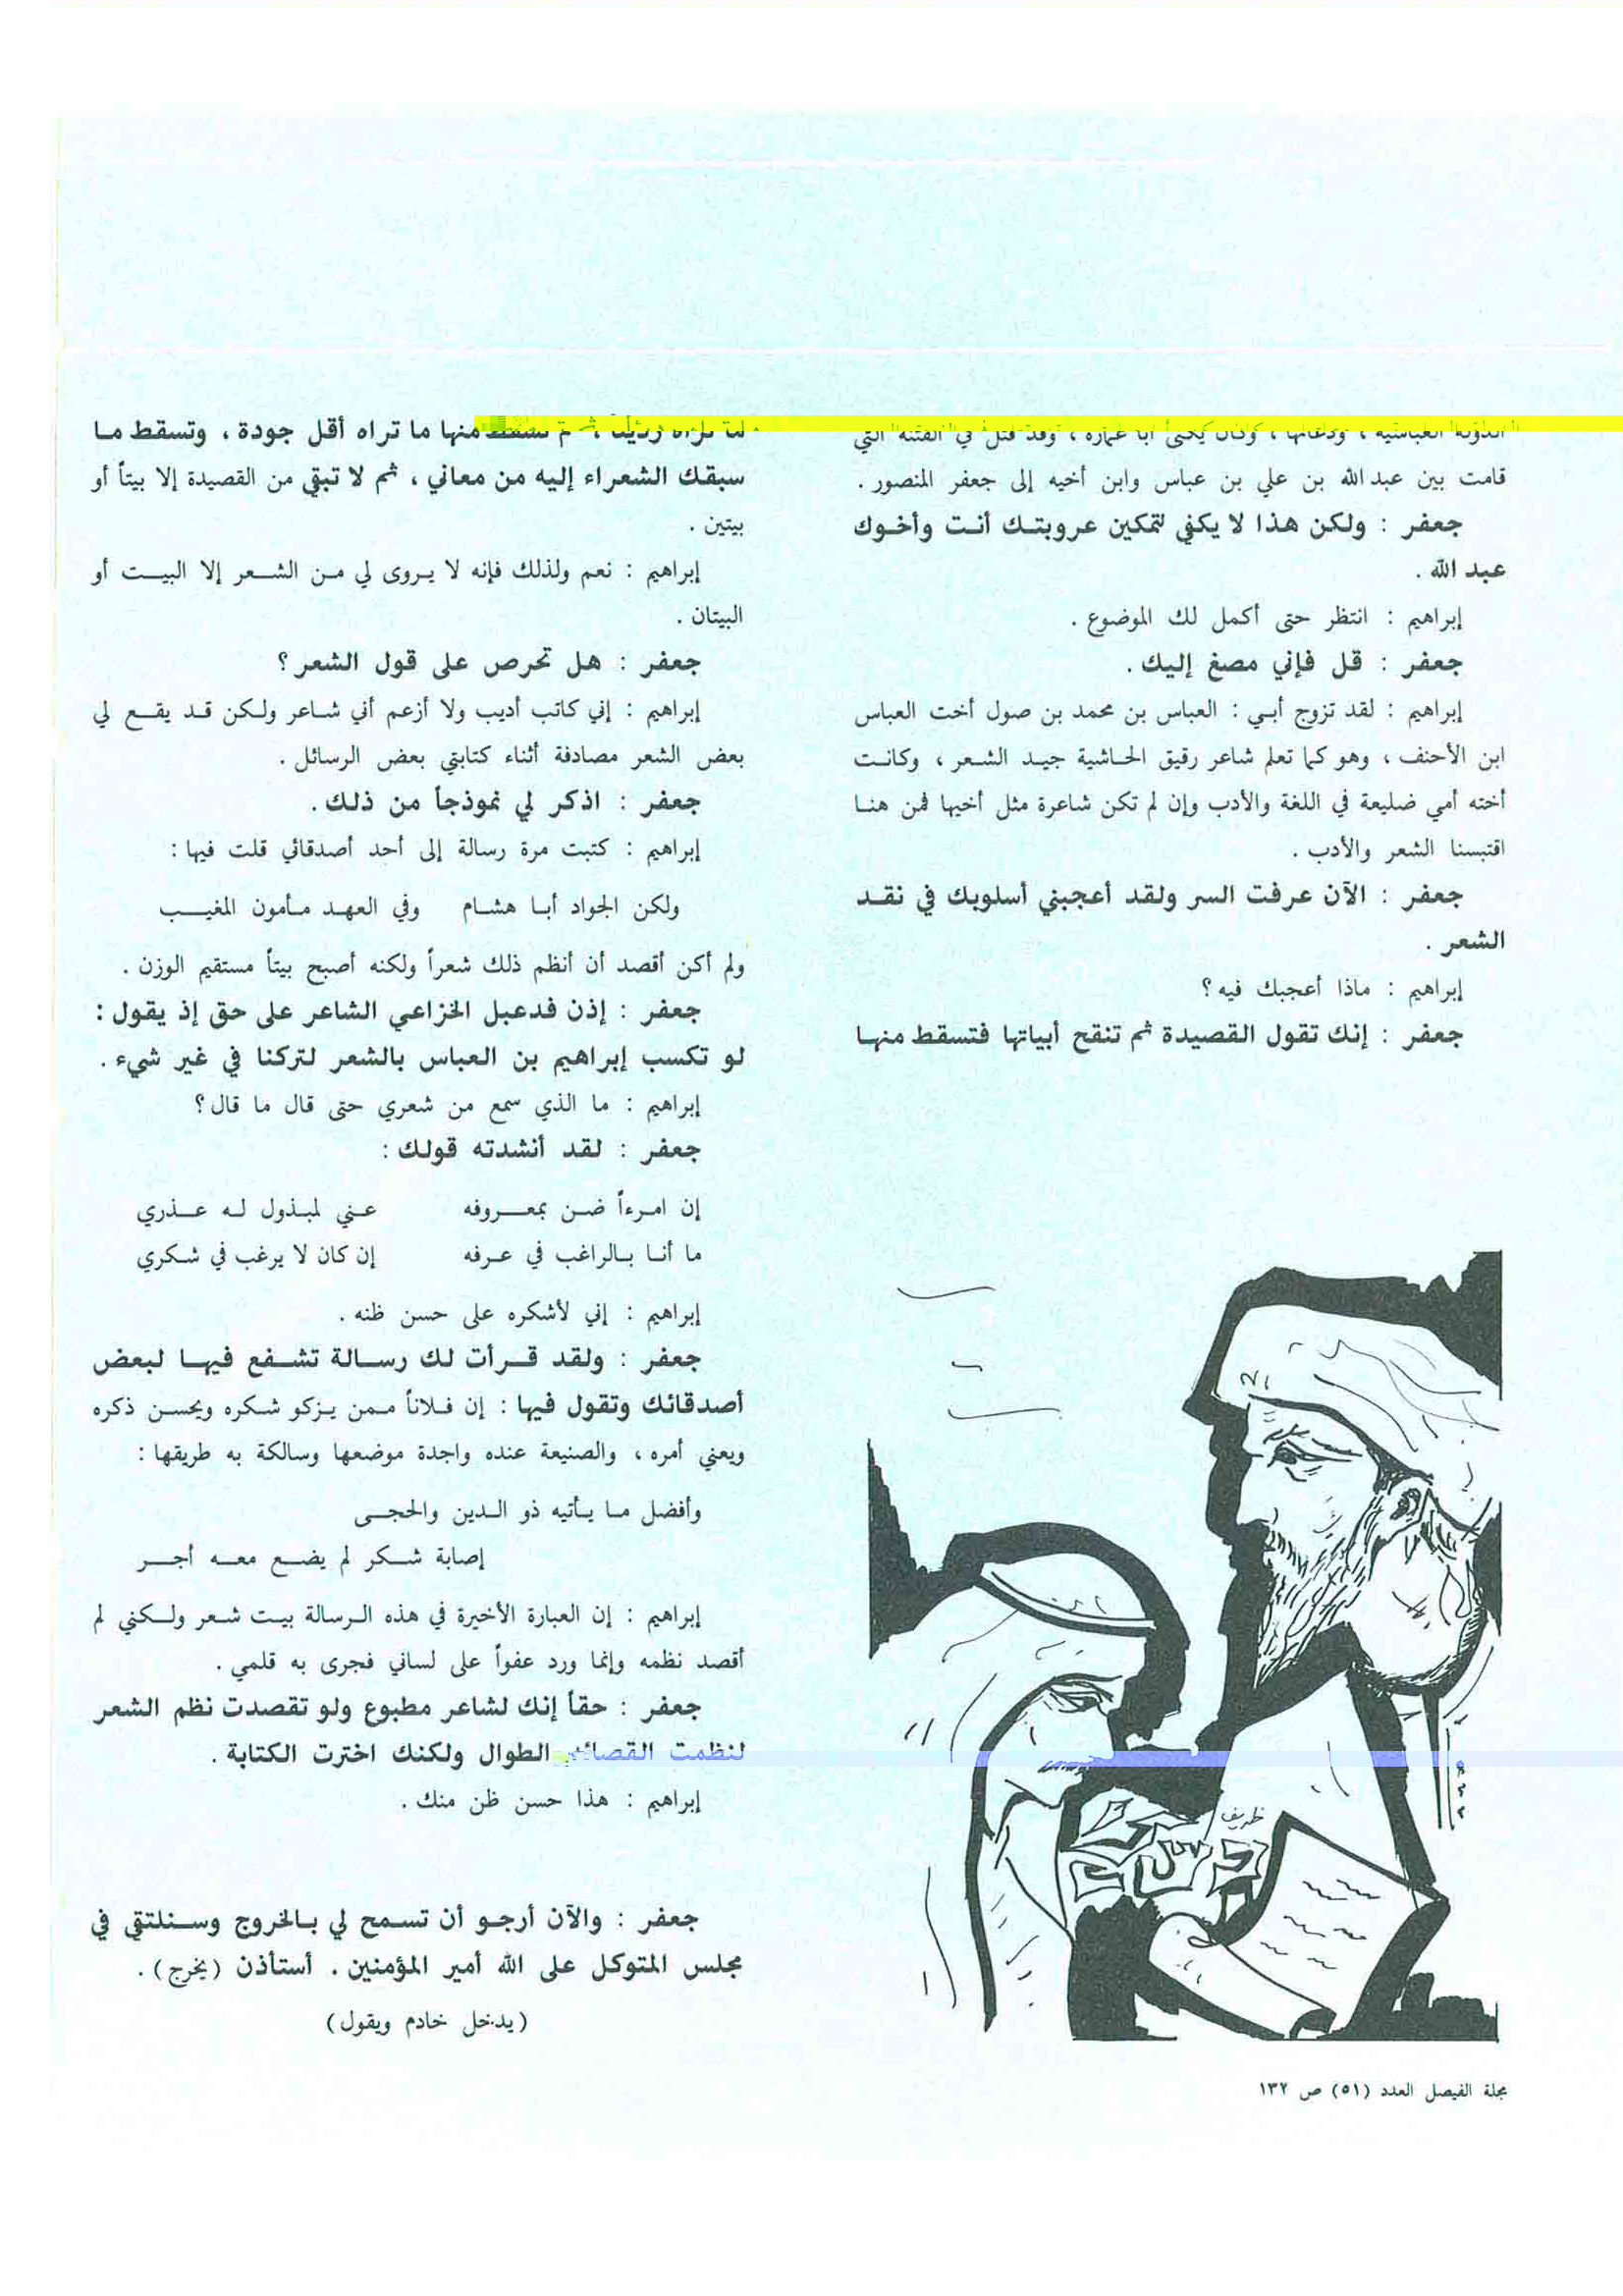 الدولة العباسية ، ودعاتها ، وكان يكنى أبا عمارة ، وقد قتل في الفتنة التي
قامت بين عبد الله بن علي بن عباس وابن أخيه إلى جعفر المنصور .
جعفر : ولكن هذا لا يكفي لتمكين عروبتك أنت وأخوك
عبد الله .
إبراهيم : انتظر حتى أكمل لك الموضوع .
جعفر : قل فإني مصغ إليك .
إبراهيم : لقد تزوج أبي : العباس بن محمد بن صول أخت العباس
ابن الأحنف ، وهو كما تعلم شاعر رقيق الحاشية جيد الشعر ، وكانت
أخته أمي ضليعة في اللغة والأدب وإن لم تكن شاعرة مثل أخيها فمن هنا
اقتبسنا الشعر والأدب .
جعفر : الآن عرفت السر ولقد أعجبني أسلوبك في نقد
الشعر .
إبراهيم : ماذا أعجبك فيه ؟
جعفر : إنك تقول القصيدة ثم تنقح أبياتها فتسقط منها
ظريف
مجلة الفيصل العدد (٥١) ص ١٣٢
منها ما تراه أقل جودة ، وتسقط ما
سبقك الشعراء إليه من معاني ، ثم لا تبقي من القصيدة إلا بيتاً أو
بيتين .
إبراهيم : نعم ولذلك فإنه لا يروى لي من الشعر إلا البيت أو
البيتان .
جعفر : هل تحرص على قول الشعر ؟
إبراهيم : إني كاتب أديب ولا أزعم أني شاعر ولكن قد يقع لي
بعض الشعر مصادفة أثناء كتابتي بعض الرسائل .
جعفر : اذكر لي نموذجاً من ذلك .
إبراهيم : كتبت مرة رسالة إلى أحد أصدقائي قلت فيها :
ولكن الجواد أبا هشام وفي العهد مأمون المغيب
ولم أكن أقصد أن أنظم ذلك شعراً ولكنه أصبح بيتاً مستقيم الوزن .
جعفر : إذن فدعبل الخزاعي الشاعر على حق إذ يقول :
لو تكسب إبراهيم بن العباس بالشعر لتركنا في غير شيء .
إبراهيم : ما الذي سمع من شعري حتى قال ما قال ؟
جعفر : لقد أنشدته قولك :
إن امرءاً ضن بمعروفه عني لمبذول له عذري
ما أنا بالراغب في عرفه إن كان لا يرغب في شكري
إبراهيم : إني لأشكره على حسن ظنه .
جعفر : ولقد قرأت لك رسالة تشفع فيها لبعض
أصدقائك وتقول فيها : إن فلاناً ممن يزكو شكره ويحسن ذكره
ويعني أمره ، والصنيعة عنده واجدة موضعها وسالكة به طريقها :
وأفضل ما يأتيه ذو الدين والحجى
إصابة شكر لم يضع معه أجر
إبراهيم : إن العبارة الأخيرة في هذه الرسالة بيت شعر ولكني لم
أقصد نظمه وإنما ورد عفواً على لساني فجرى به قلمي .
جعفر : حقاً إنك لشاعر مطبوع ولو تقصدت نظم الشعر
لنظمت القصائد الطوال ولكنك اخترت الكتابة .
إبراهيم : هذا حسن ظن منك .
جعفر : والآن أرجو أن تسمح لي بالخروج وسنلتقي في
مجلس المتوكل على الله أمير المؤمنين . أستأذن (يخرج) .
(يدخل خادم ويقول)